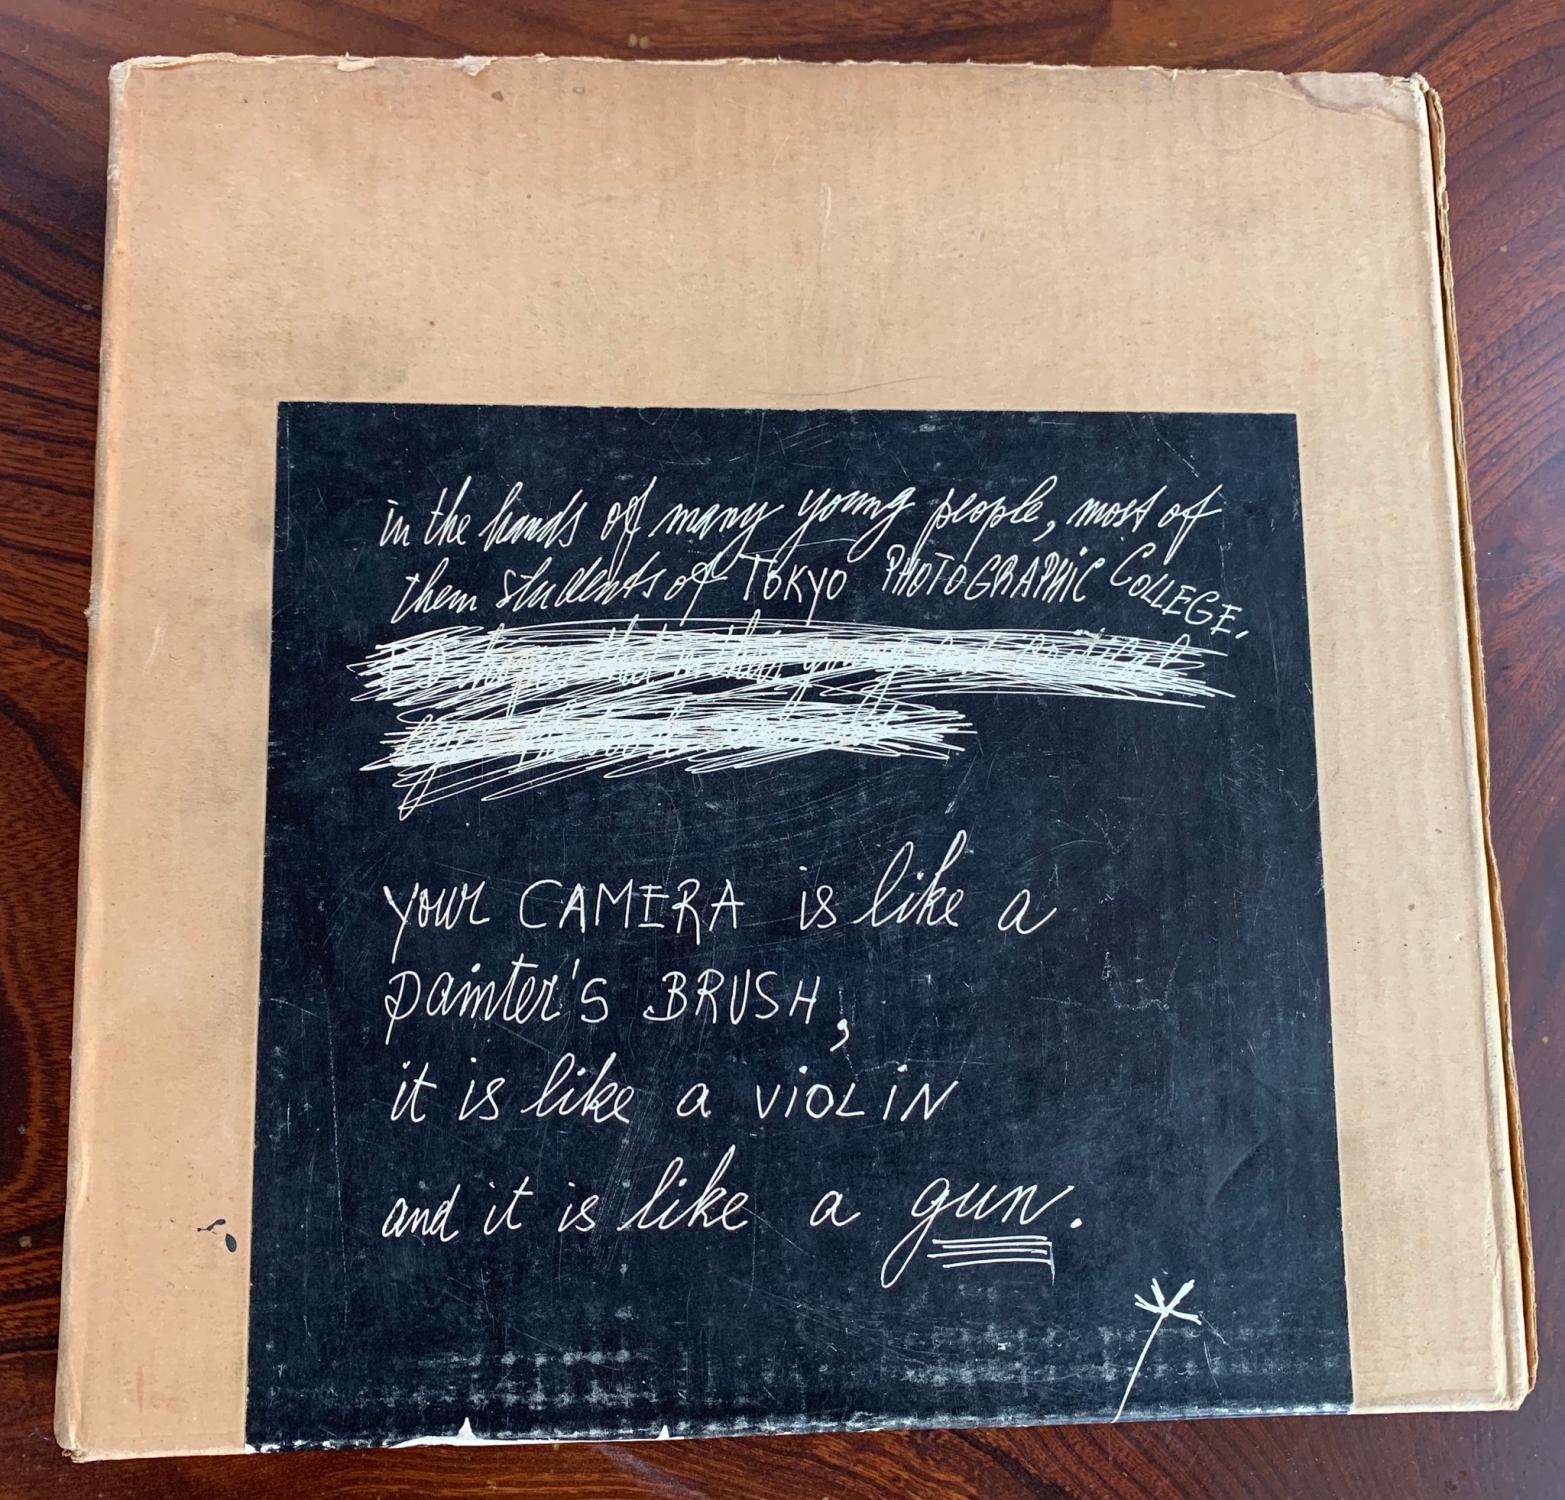 in the hands of many young people, most of
them students of TOKYO PHOTOGRAPHIC COLLEGE.
your CAMERA is like a
painter's BRUSH,
it is like a VIOLIN
and it is like a gun.